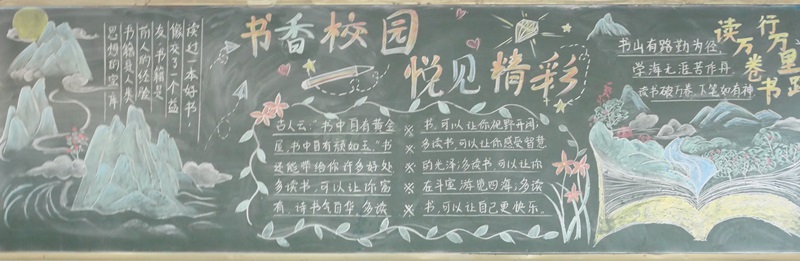 读过一本好书，
像交了一个益
友，书籍是
前人的经验
书籍是人类
思想的宝库
书香校园
悦见精彩
古人云："书中自有黄金
屋，书中自有颜如玉。"书
还能带给你许多好处
多读书，可以让你富
有，诗书气自华，多读
书，可以让你视野开阔，
多读书可以让你感受智慧
的光泽；多读书，可以让你
在斗室，游览四海；多读
书，可以让自己更快乐。
书山有路勤为径，
学海无涯苦作舟，
读书破万卷，下笔如有神
行万里路
读万卷书